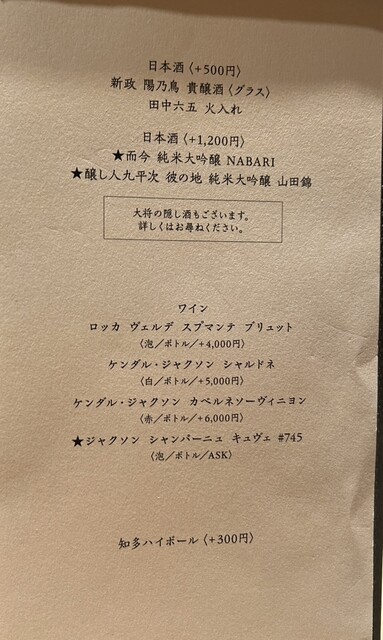 日本酒〈+500円〉
新政 陽乃鳥 貴醸酒〈グラス〉
田中六五 火入れ
日本酒〈+1,200円〉
★而今 純米大吟醸 NABARI
★醸し人九平次 彼の地 純米大吟醸 山田錦
大将の隠し酒もございます。
詳しくはお尋ねください。
ワイン
ロッカ ヴェルデ スプマンテ ブリュット
〈泡/ボトル/+4,000円〉
ケンダル・ジャクソン シャルドネ
〈白/ボトル/+5,000円〉
ケンダル・ジャクソン カベルネソーヴィニヨン
〈赤/ボトル/+6,000円〉
★ジャクソン シャンパーニュ キュヴェ #745
〈泡/ボトル/ASK〉
知多ハイボール〈+300円〉